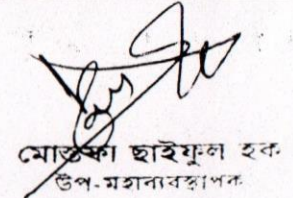 মোস্তফা ছাইফুল হক
উপ-মহাব্যবস্থাপক